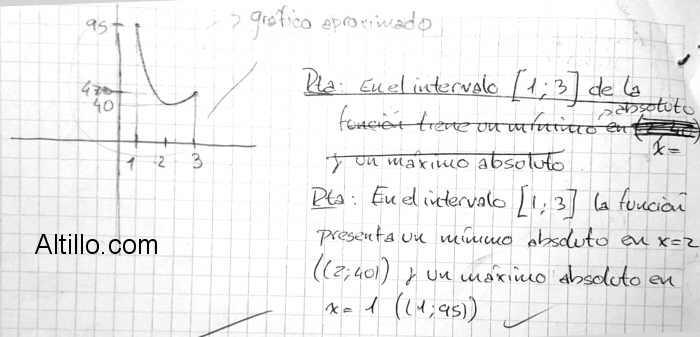 95
→ gráfico aproximado
40
1 2 3
Rta: En el intervalo [1; 3] de la
función tiene un mínimo absoluto en
x=
y un máximo absoluto
Rta: En el intervalo [1; 3] la función
presenta un mínimo absoluto en x=2
((2; 40)) y un máximo absoluto en
x= 1 ((1; 95))
Altillo.com